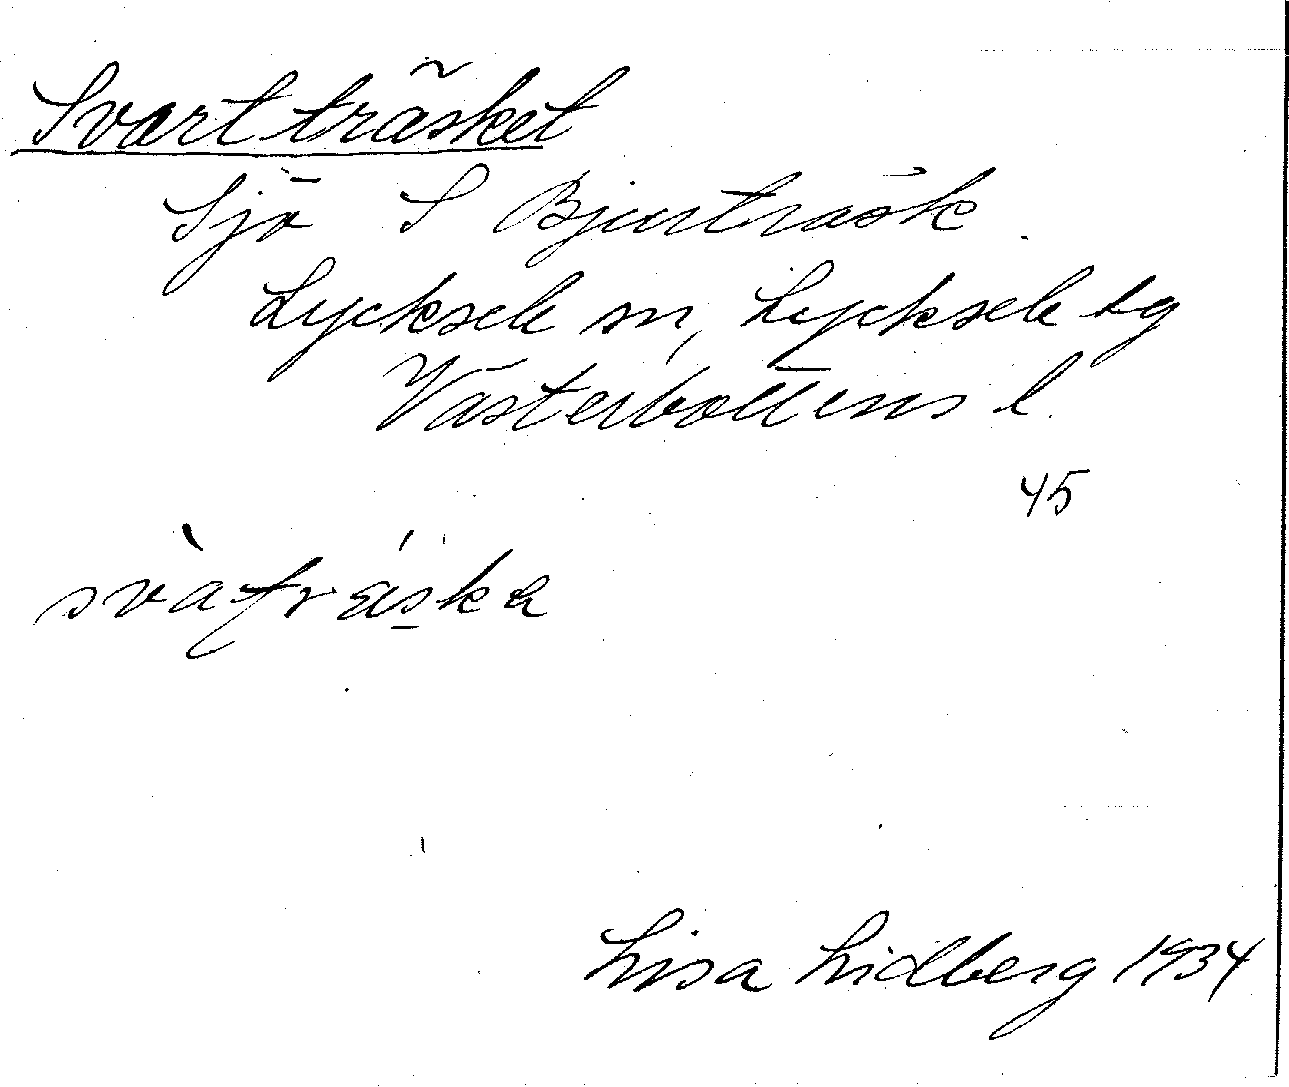 Svartträsket
Sjö S Bjurträsk.
Lycksele sn, Lycksele tg
Västerbottens l.
45
Lisa Lidberg 1934